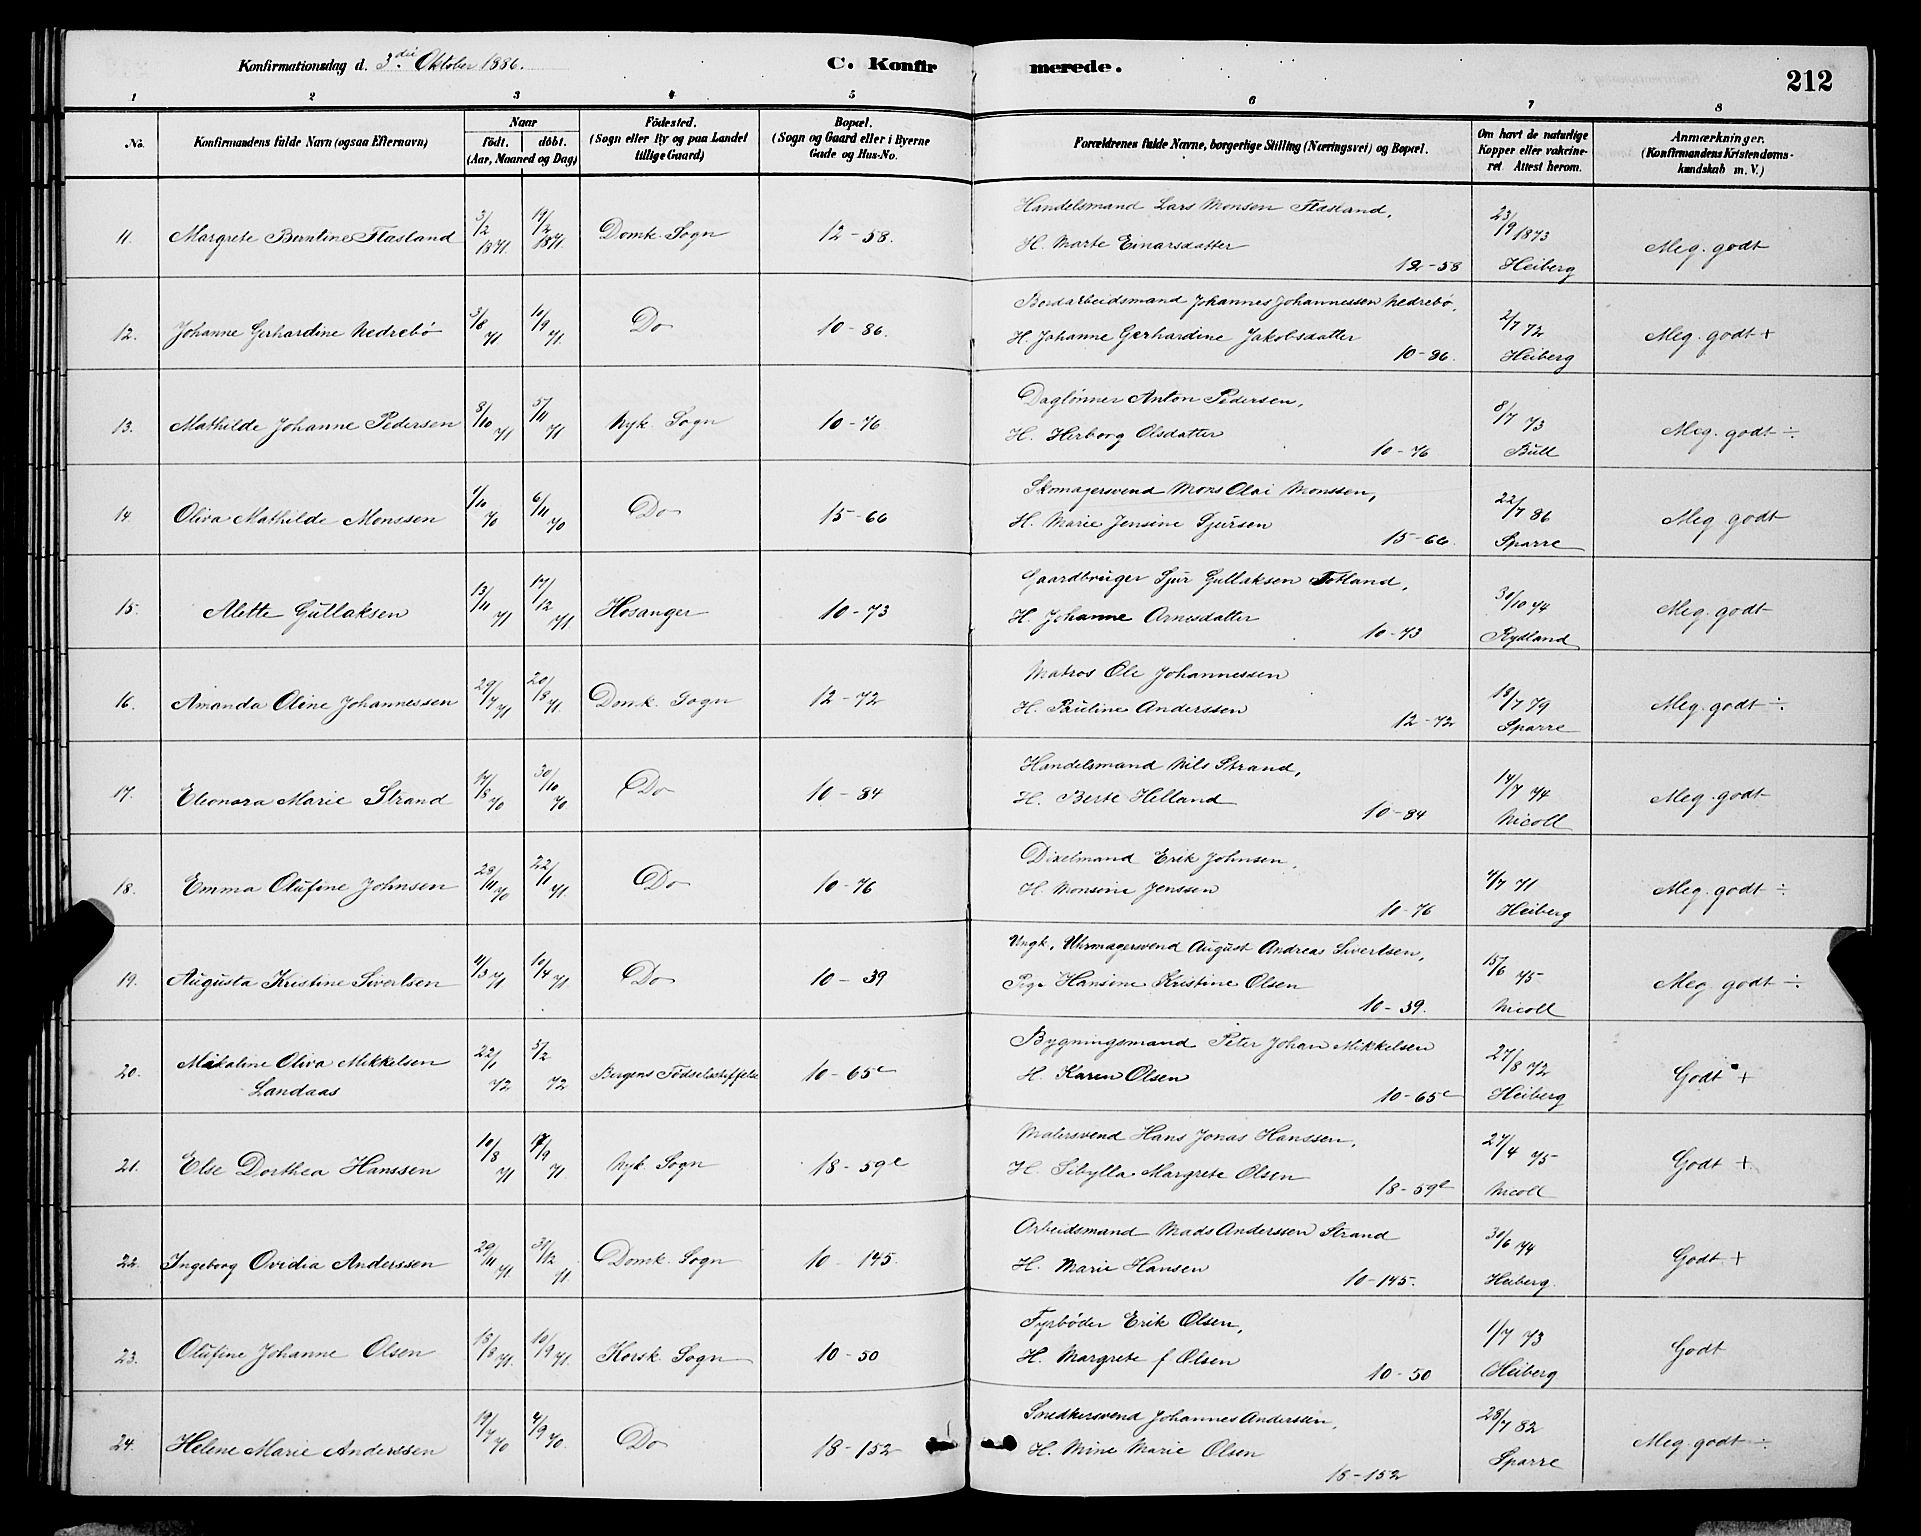 Konfirmationsdag d. 3die Oktober 1886. C. Konfirmerede. 212
1 2 3 4 5 6 7 8
No. Konfirmandens fulde Navn (ogsaa Efternavn) Naar födt. döbt. (Aar, Maaned og Dag) Födested. (Sogn eller By og paa Landet tillige Gaard) Bopæl. (Sogn og Gaard eller i Byerne Gade og Hus-No. Forældrenes fulde Navne, borgerlige Stilling (Næringsvei) og Bopæl. Om havt de naturlige Kopper eller vakcineret Attest herom. Anmærkninger. (Konfirmandens Kristendomskundskab m. V.)
11. Margrete Berntine Flasland 3/2 1871. 19/2 1871. Domk. Sogn 12-58. Handelsmand Lars Monsen Flasland, H. Marte Einarsdatter 12-58 23/9 1873 Heiberg Meg. godt
12. Johanne Gerhardine Nedrebö 3/8 71 10/9 71. Do 10-86. Bordarbeidsmand Johannes Johannessen Nedrebö, H. Johanne Gerhardine Jakobsdatter 10-86. 2/7 72 Heiberg Meg. godt +
13. Mathilde Johanne Pedersen 8/10 71 5/11 71 Nyk. Sogn 10-76 Daglönner Anton Pedersen, H. Herborg Olsdatter 10-76 8/7 73 Bull Meg. godt ÷
14. Oliva Mathilde Monssen 1/10 70 6/11 70 Do 15-66 Skomagersvend Mons Olai Monssen, H. Marie Jensine Sjursen 15-66. 22/7 86 Sparre Meg. godt
15. Alette Gullaksen 13/11 71 17/12 71 Hosanger 10-73 Gaardbruger Sjur Gullaksen Totland, H. Johanne Arnesdatter 10-73 30/10 74 Rydland Meg. godt
16. Amanda Oline Johannessen 29/7 71 20/8 71. Domk. Sogn 12-72 Matros Ole Johannessen H. Pauline Anderssen 12-72 18/7 79 Sparre Meg. godt ÷
17. Eleonora Marie Strand 17/8 70 30/10 70 Do 10-84 Handelsmand Nils Strand, H. Berte Helland 10-84 14/7 74 Nicoll Meg. godt
18. Emma Olufine Johnsen 28/11 70 22/1 71. Do 10-76 Dixelmand Erik Johnsen, H. Monsine Jenssen 10-76 4/7 71 Heiberg Meg. godt ÷
19. Augusta Kristine Sivertsen 4/3 71 10/4 71 Do 10-39 Ungk. Uhrmagersvend August Andreas Sivertsen, Pige Hansine Kristine Olsen 10-39. 15/6 75 Nicoll Meg. godt ÷
20. Mikaline Oliva Mikkelsen Landaas 22/1 72 3/2 72 Bergens Födselsstiftelse 10-65c Bygningsmand Peter Johan Mikkelsen H. Karen Olsen 10-65c 27/8 72 Heiberg Godt +
21. Else Dorthea Hanssen 10/8 71 17/9 71. Nyk. Sogn 18-59e Malersvend Hans Jonas Hanssen, H. Sibylla Margrete Olsen 18-59e 27/4 75 Nicoll Godt +
22. Ingeborg Ovidia Anderssen 29/11 71. 31/12 71 Domk. Sogn 10-145. Arbeidsmand Mads Anderssen Strand H. Marie Hansen 10-145. 30/6 74 Heiberg. Godt +
23. Olufine Johanne Olsen 13/8 71. 10/9 71. Korsk. Sogn 10-50 Fyrböder Erik Olsen, H. Margrete f Olsen 10-50 1/7 73 Heiberg Godt
24. Helene Marie Anderssen 19/7 70 4/9 70. Do 18-152 Snedkersvend Johannes Anderssen, H. Mine Marie Olsen 18-152 28/7 82 Sparre Meg. godt ÷